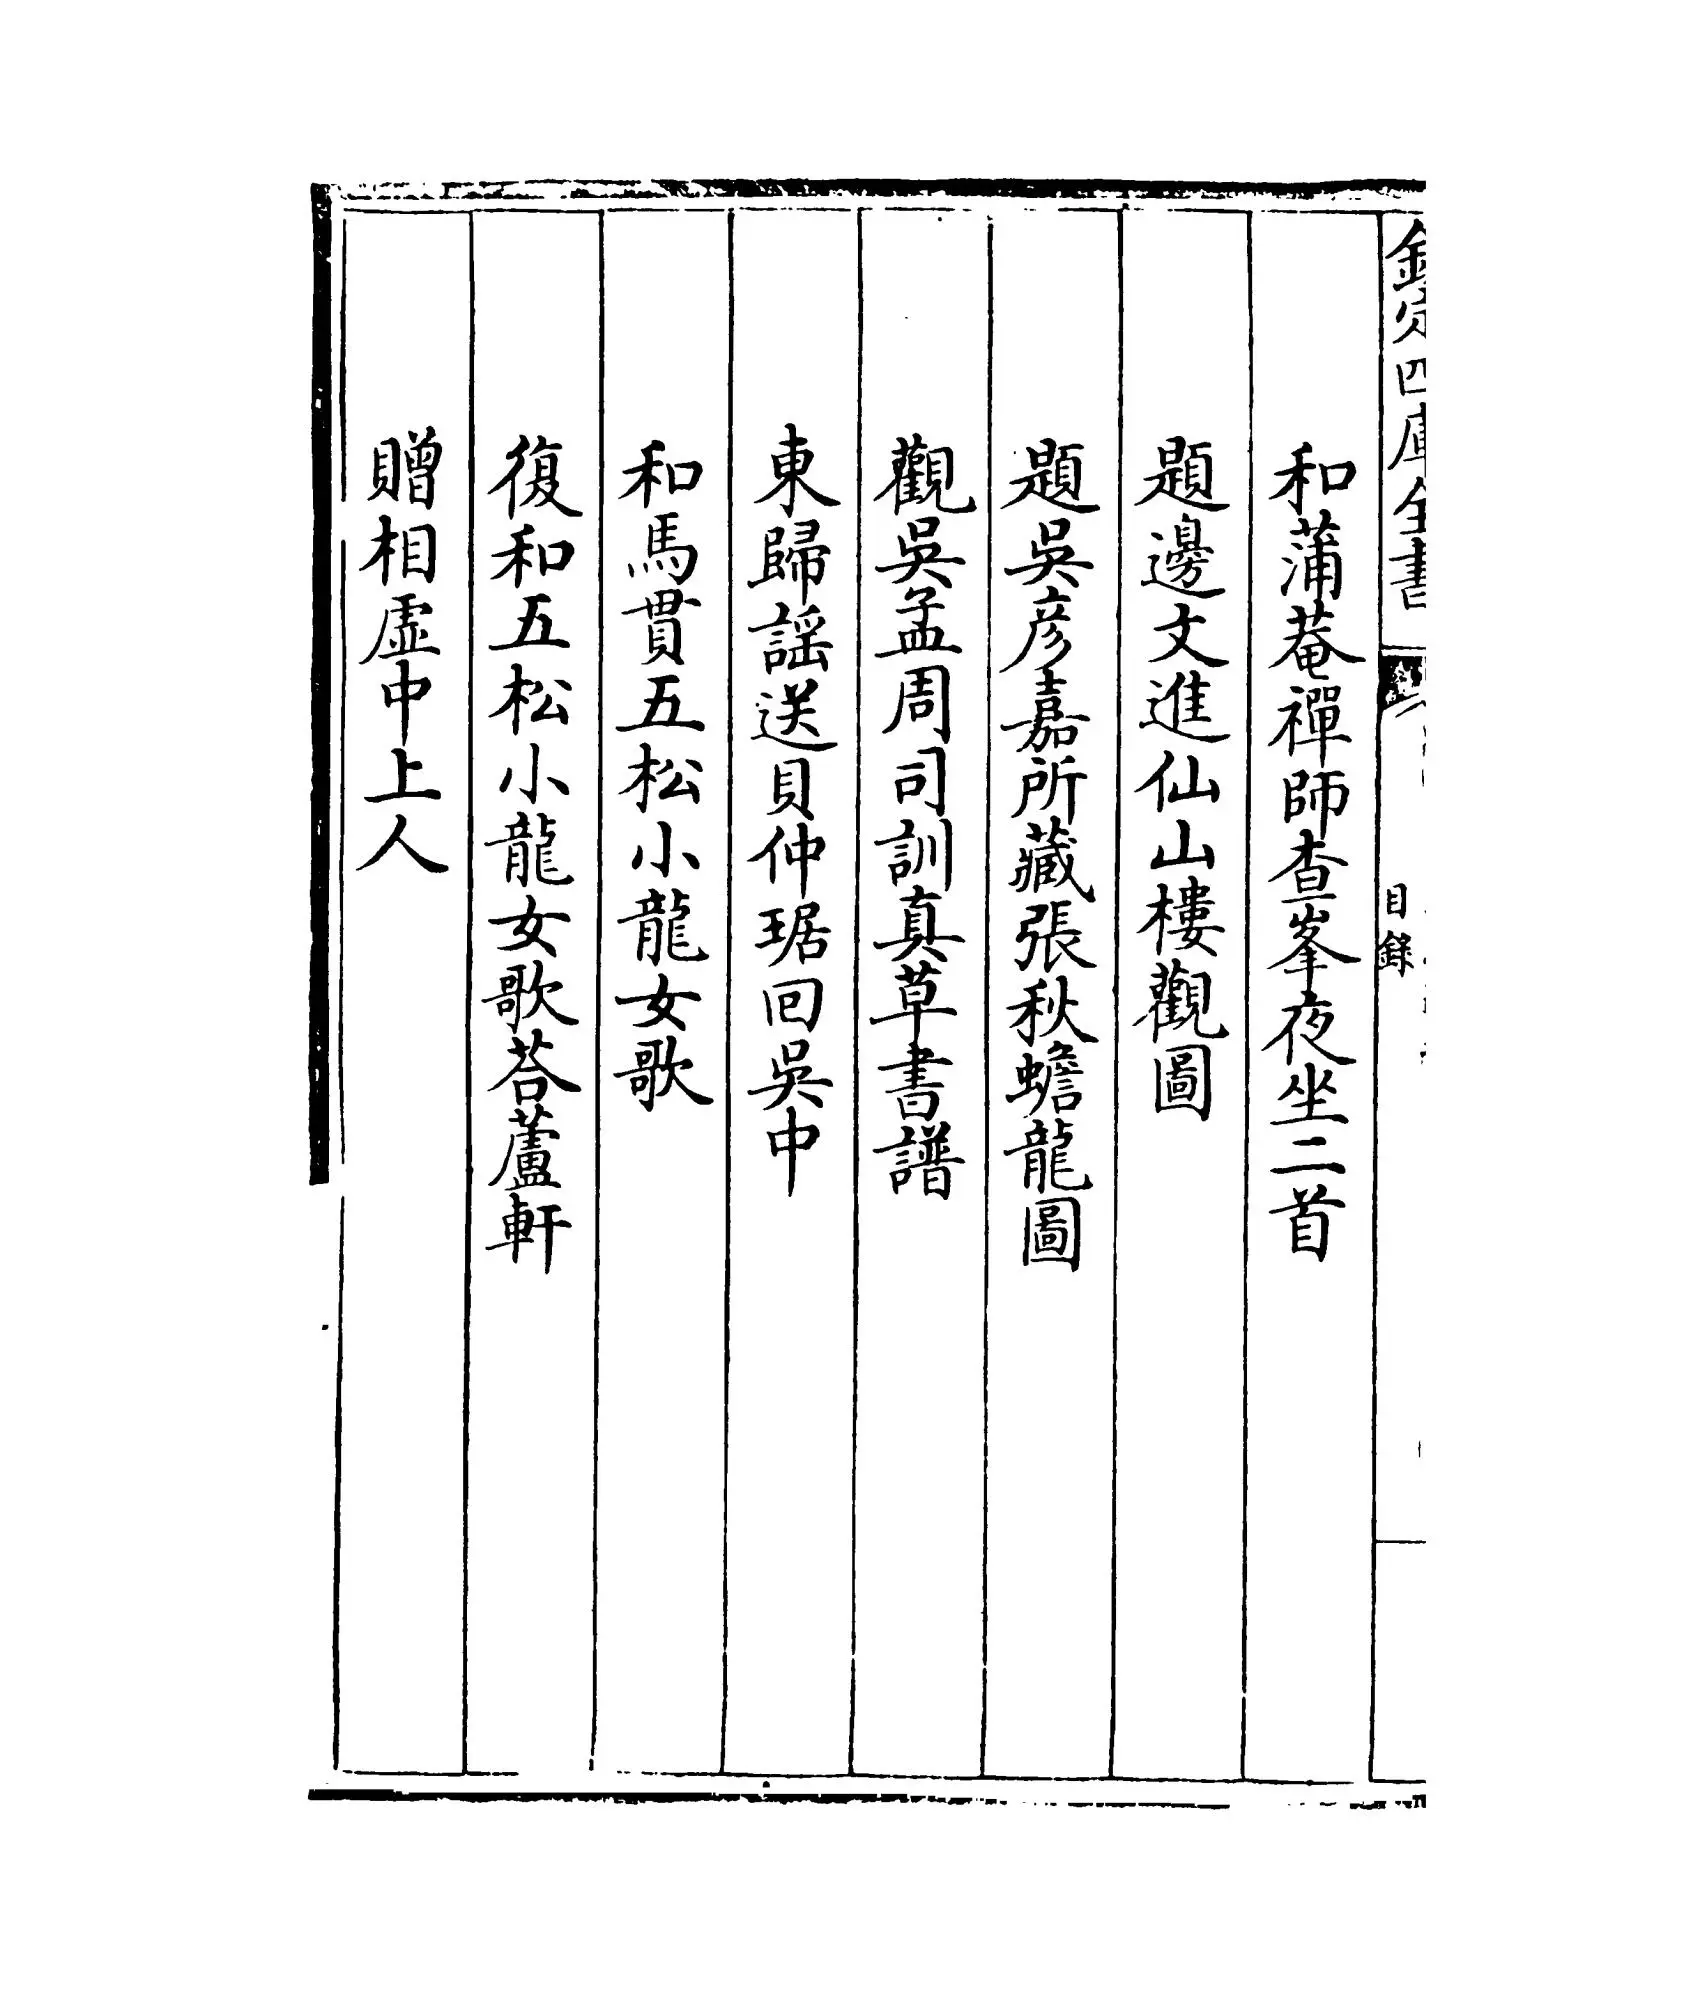 欽定四庫全書
目錄
和蒲菴禪師查峯夜坐二首
題邊文進仙山樓觀圖
題吳彥嘉所藏張秋蟾龍圖
觀吳孟周司訓真草書譜
東歸謡送貝仲琚回吳中
和馬貫五松小龍女歌
復和五松小龍女歌荅蘆軒
贈相虛中上人